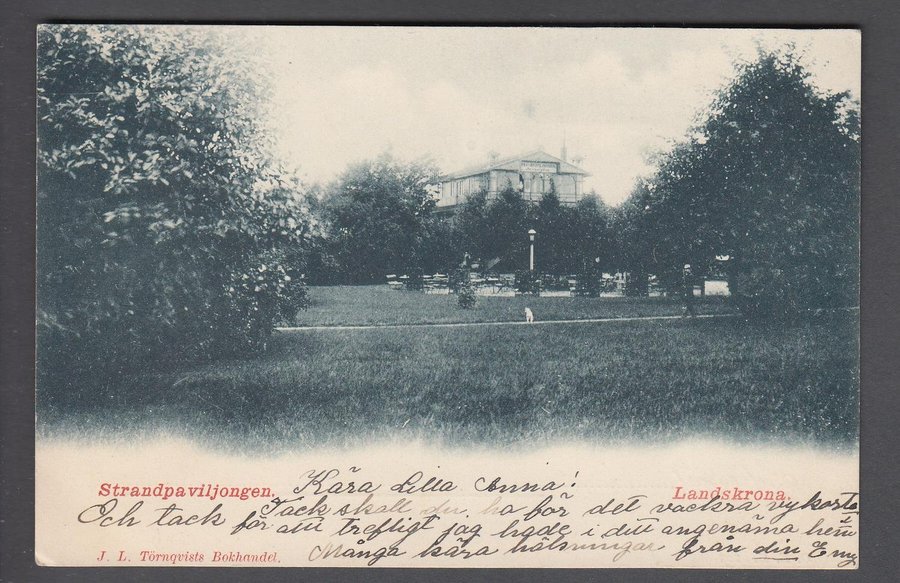 Strandpaviljongen.
Landskrona.
Kära Lilla Anna!
Tack skall du ha för det vackra vykortet
Och tack för att trefligt jag hade i ditt angenäma hem
Många kära hälsningar från din Emy
J. L. Törnqvists Bokhandel.